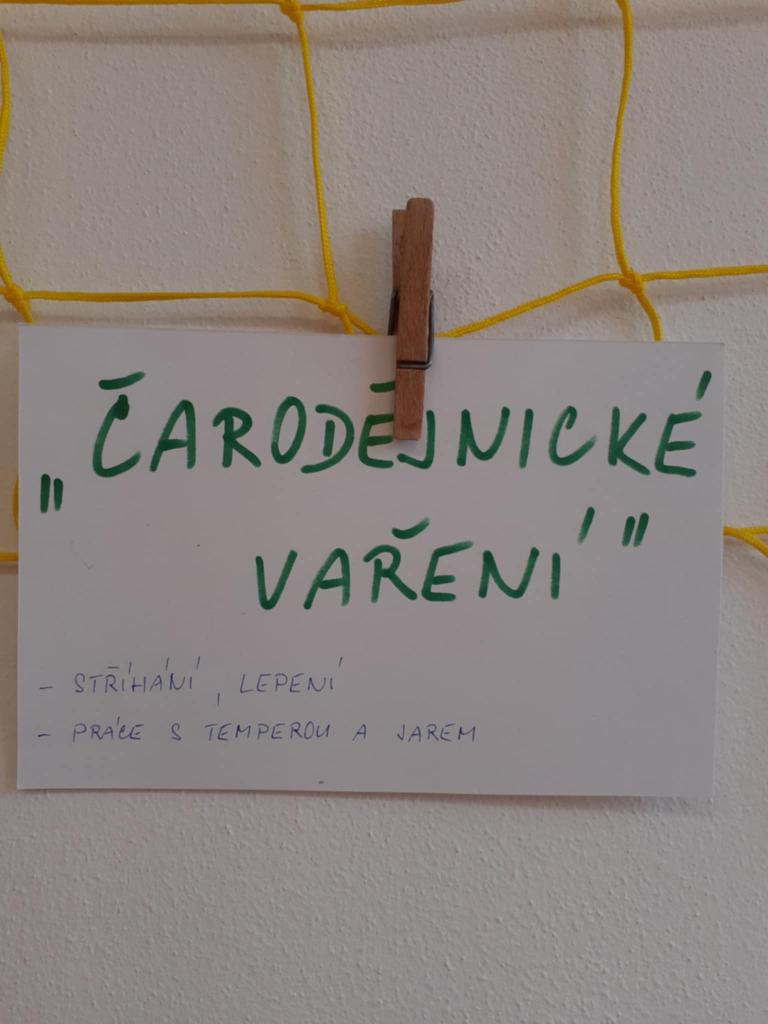 „ČARODĚJNICKÉ
VAŘENÍ"
- STŘÍHÁNÍ, LEPENÍ
- PRÁCE S TEMPEROU A JAREM